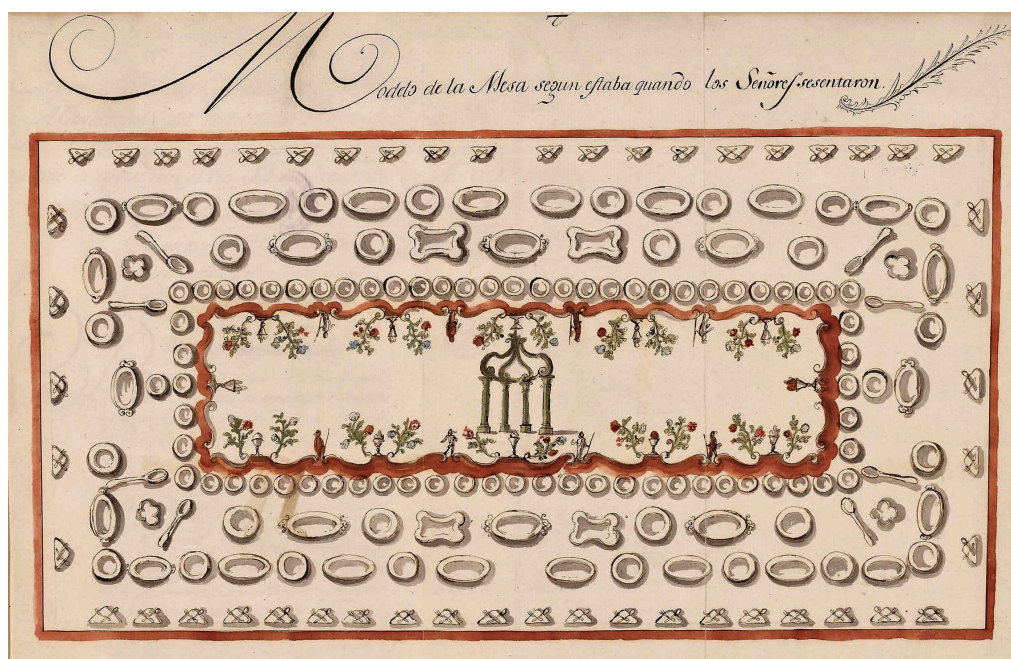 Modelo de la Mesa segun estaba quando los Señores se sentaron.